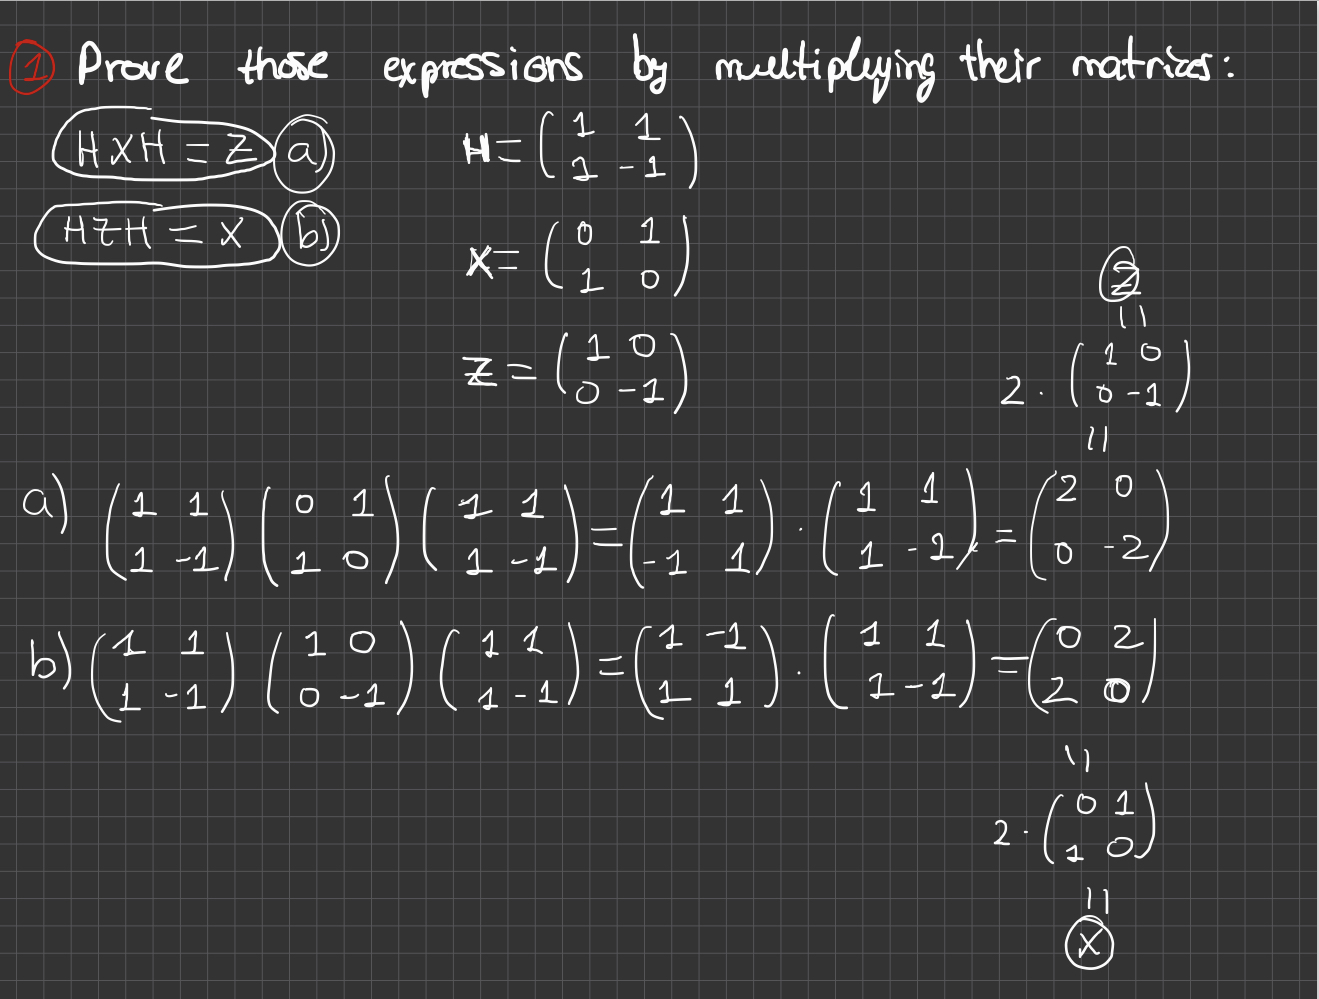 ① Prove those expressions by multiplying their matrices:
HXH = Z a)
HZH = X b)
H = ( 1 1
1 -1 )
X = ( 0 1
1 0 )
Z = ( 1 0
0 -1 )
a) ( 1 1 ) ( 0 1 ) ( 1 1 ) = ( 1 1 ) · ( 1 1 ) = ( 2 0 )
( 1 -1 ) ( 1 0 ) ( 1 -1 ) ( -1 1 ) ( 1 -1 ) ( 0 -2 )
||
2 · ( 1 0
0 -1 )
||
Z
b) ( 1 1 ) ( 1 0 ) ( 1 1 ) = ( 1 -1 ) · ( 1 1 ) = ( 0 2 )
( 1 -1 ) ( 0 -1 ) ( 1 -1 ) ( 1 1 ) ( 1 -1 ) ( 2 0 )
||
2 · ( 0 1
1 0 )
||
X